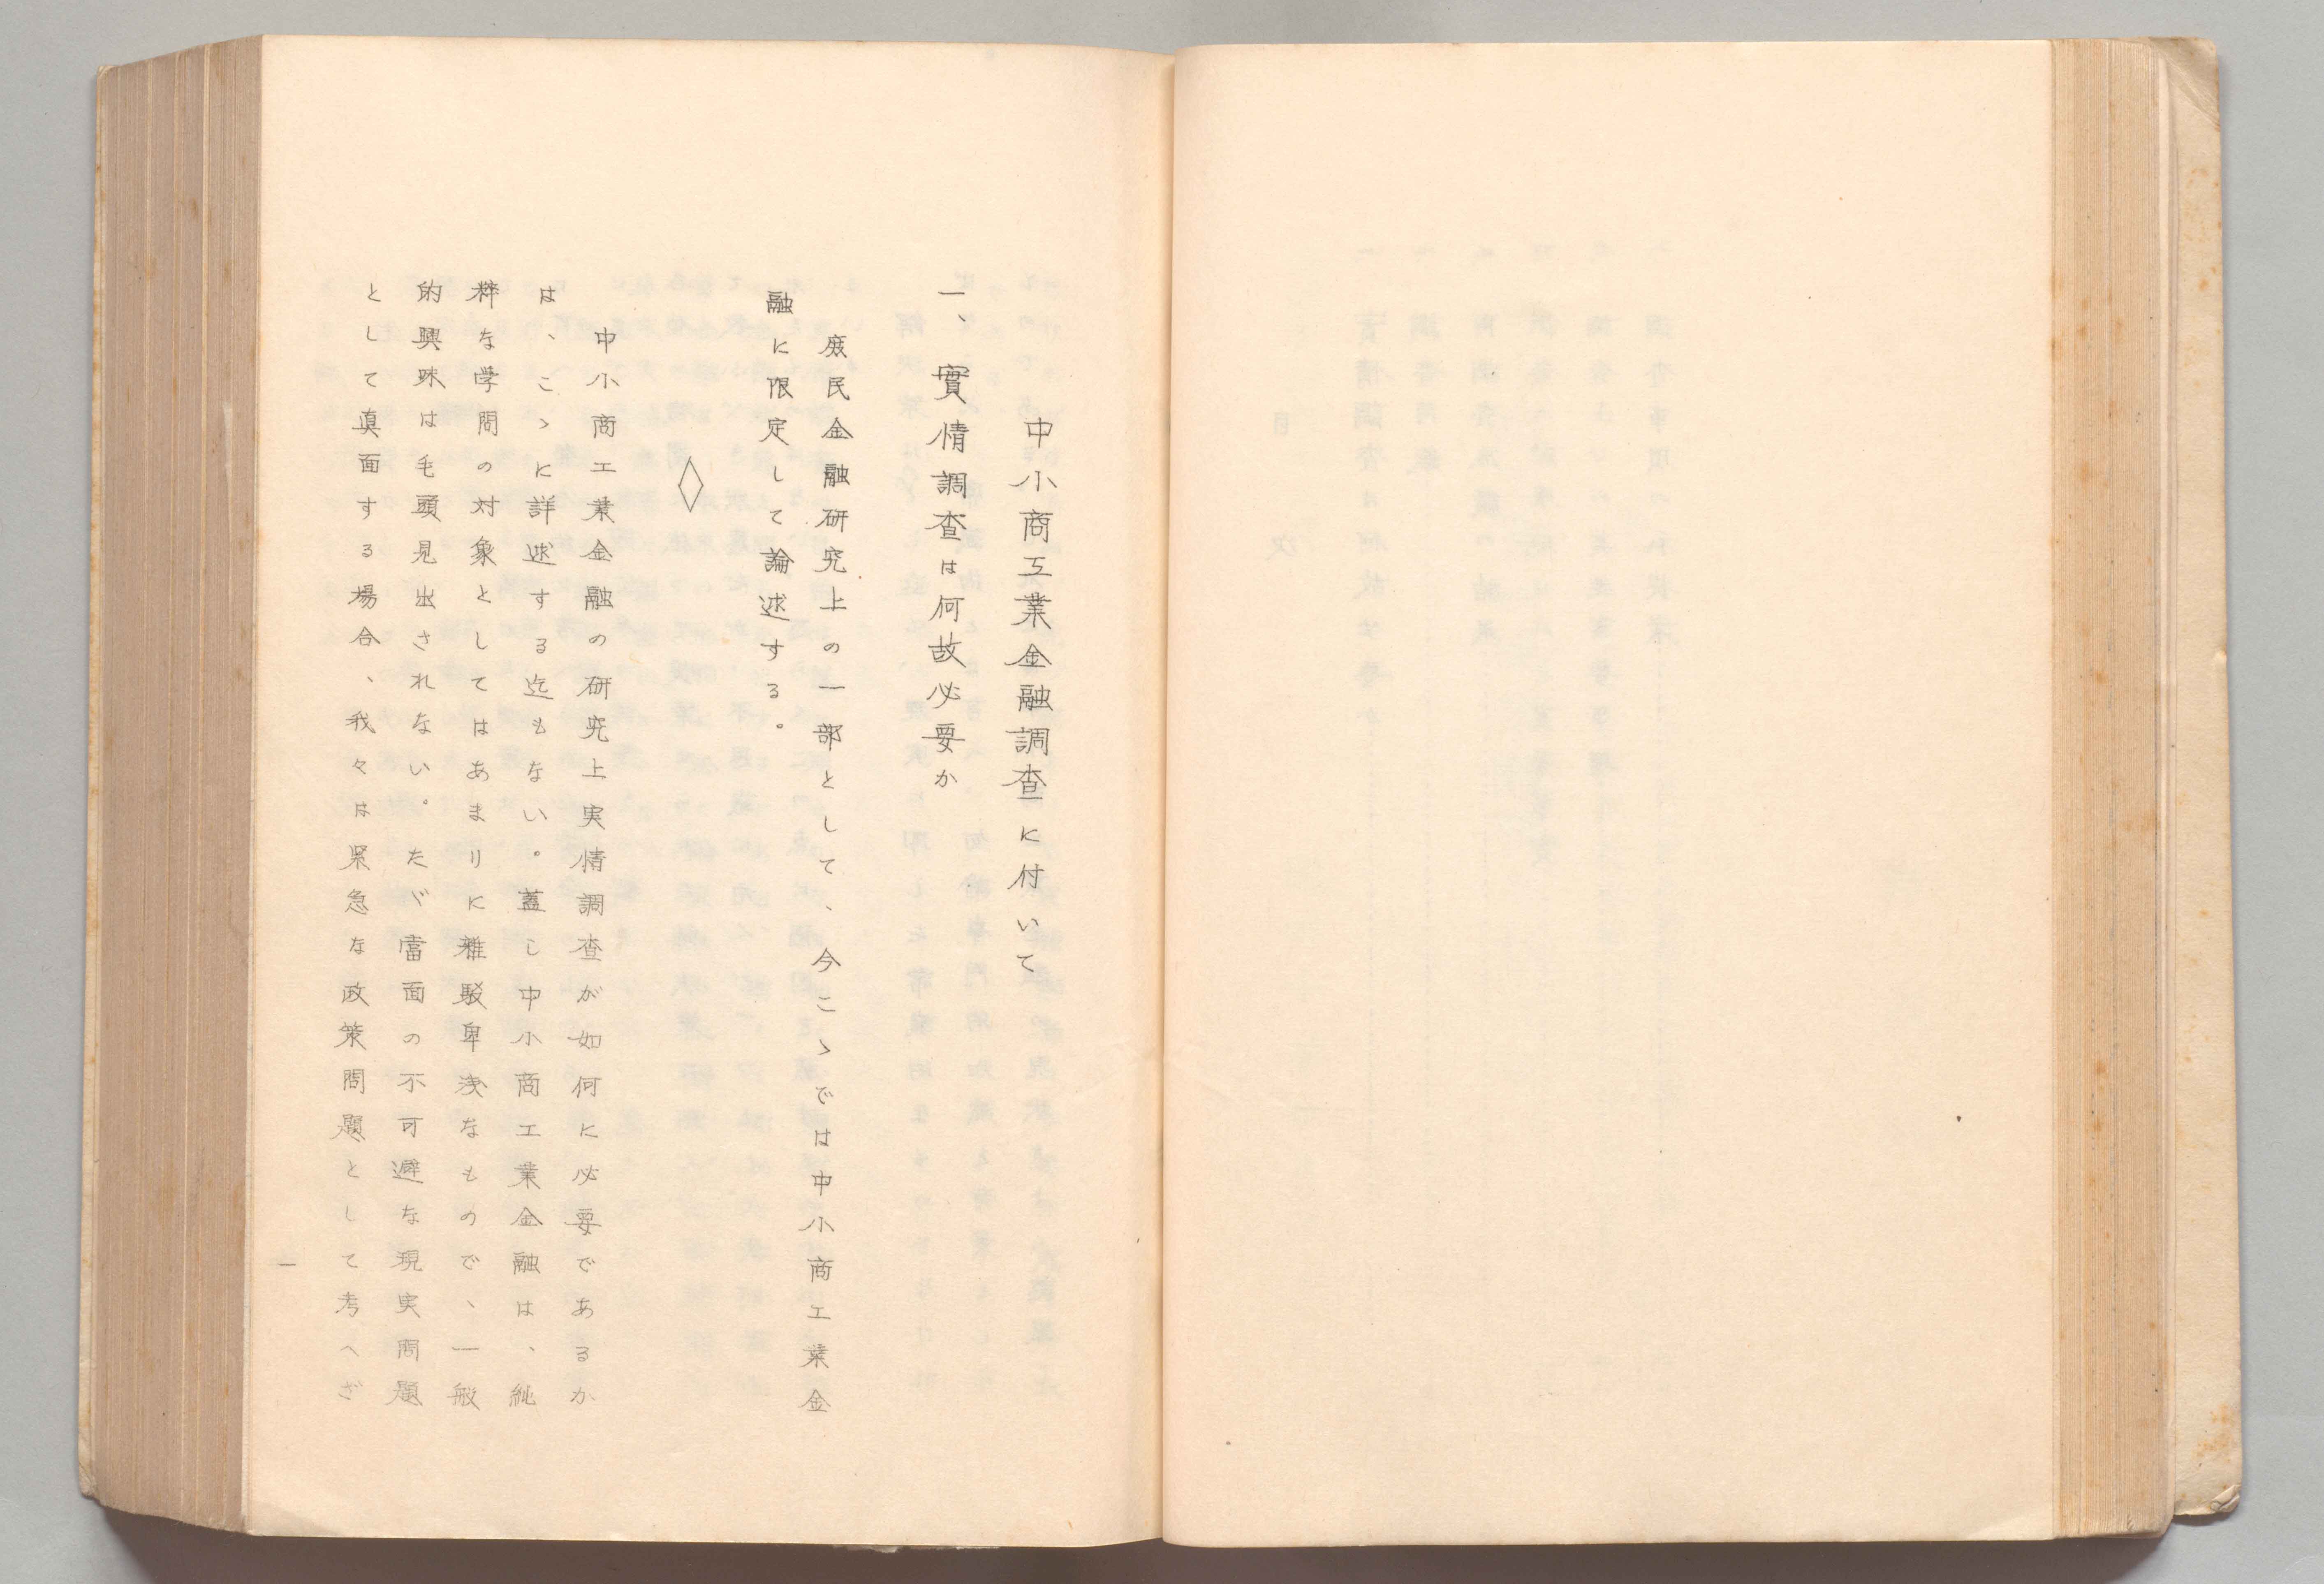 中小商工業金融調査に付いて
一、實情調査は何故必要か
庶民金融研究上の一部として、今こゝでは中小商工業金
融に限定して論述する。
◇
中小商工業金融の研究上実情調査が如何に必要であるか
は、こゝに詳述する迄もない。蓋し中小商工業金融は、純
粋な学問の対象としてはあまりに雑駁卑浅なもので、一般
的興味は毛頭見出されない。たゞ當面の不可避な現実問題
として真面する場合、我々は緊急な政策問題として考へざ
一